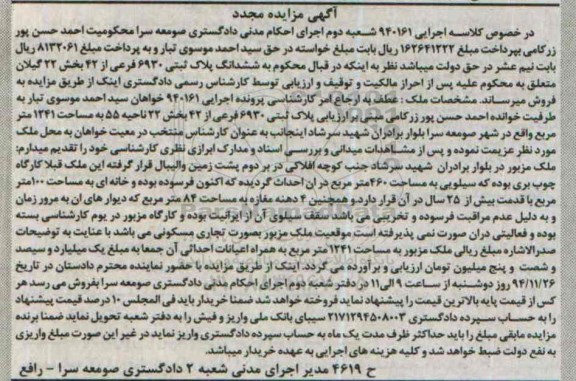 آگهی مزایده مجدد
در خصوص کلاسه اجرایی ۹۴۰۱۶۱ شعبه دوم اجرای احکام مدنی دادگستری صومعه سرا محکومیت احمد حسن پور
زرکامی بپرداخت مبلغ ۱۶۲۶۴۱۲۲۲ ریال بابت مبلغ خواسته در حق سید احمد موسوی تبار و به پرداخت مبلغ ۸۱۳۲۰۶۱ ریال
بابت نیم عشر در حق دولت میباشد نظر به اینکه در قبال محکوم به ششدانگ پلاک ثبتی ۶۹۳۰ فرعی از ۴۲ بخش ۲۲ گیلان
متعلق به محکوم علیه پس از احراز مالکیت و توقیف و ارزیابی توسط کارشناس رسمی دادگستری اینک از طریق مزایده به
فروش میرساند. مشخصات ملک : عطف به ارجاع امر کارشناسی پرونده اجرایی ۹۴۰۱۶۱ خواهان سید احمد موسوی تبار به
طرفیت خوانده احمد حسن پور زرکامی مبنی بر ارزیابی پلاک ثبتی ۶۹۳۰ فرعی از ۴۲ بخش ۲۲ ناحیه ۵۵ به مساحت ۱۲۴۱ متر
مربع واقع در شهر صومعه سرا بلوار برادران شهید سرشاد اینجانب به عنوان کارشناس منتخب در معیت خواهان به محل ملک
مورد نظر عزیمت نموده و پس از مشاهدات میدانی و بررسی اسناد و مدارک ابرازی نظری کارشناسی خود را تقدیم میدارم:
ملک مزبور در بلوار برادران شهید سرشاد جنب کوچه افلاکی در بر دوم پشت زمین والیبال قرار گرفته این ملک قبلا کارگاه
چوب بری بوده که سیلویی به مساحت ۴۶۰ متر مربع در آن احداث گردیده که اکنون فرسوده بوده و خانه ای به مساحت ۱۰۰ متر
مربع با قدمت بیش از ۲۵ سال در آن قرار دارد و همچنین ۴ دهنه مغازه به مساحت ۸۴ متر مربع که دیوار های آن به مرور زمان
و به دلیل عدم مراقبت فرسوده و تخریبی می باشد سقف سیلوی آن از ایرانیت بوده و کارگاه مزبور در یوم کارشناسی بسته
بوده و فعالیتی در آن صورت نمی پذیرفته است موقعیت ملک مزبور بصورت تجاری مسکونی می باشد با عنایت به توضیحات
صدرالاشاره مبلغ ریالی ملک مزبور به مساحت ۱۲۴۱ متر مربع به همراه اعیانات احداثی آن جمعا به مبلغ یک میلیارد و سیصد
و شصت و پنج میلیون تومان ارزیابی و برآورده می گردد. اینک از طریق مزایده با حضور نماینده محترم دادستان در تاریخ
۹۴/۱۱/۲۶ روز دوشنبه از ساعت ۹ الی ۱۱ در دفتر شعبه دوم اجرای احکام مدنی دادگستری صومعه سرا بفروش می رسد هر
کس از قیمت پایه بالاترین قیمت را پیشنهاد نماید فروخته خواهد شد ضمنا خریدار باید فی المجلس ۱۰ درصد قیمت پیشنهاد
را به حساب سپرده دادگستری ۲۱۷۱۲۹۴۵۰۸۰۰۳ سیبای بانک ملی واریز و فیش را به دفتر شعبه تحویل نماید ضمنا برنده
مزایده مابقی مبلغ را باید حداکثر ظرف مدت یک ماه به حساب سپرده دادگستری واریز نماید در غیر این صورت مبلغ واریزی
به نفع دولت ضبط خواهد شد و کلیه هزینه های اجرایی به عهده خریدار میباشد.
ح ۴۶۱۹ مدیر اجرای مدنی شعبه ۲ دادگستری صومعه سرا - رافع